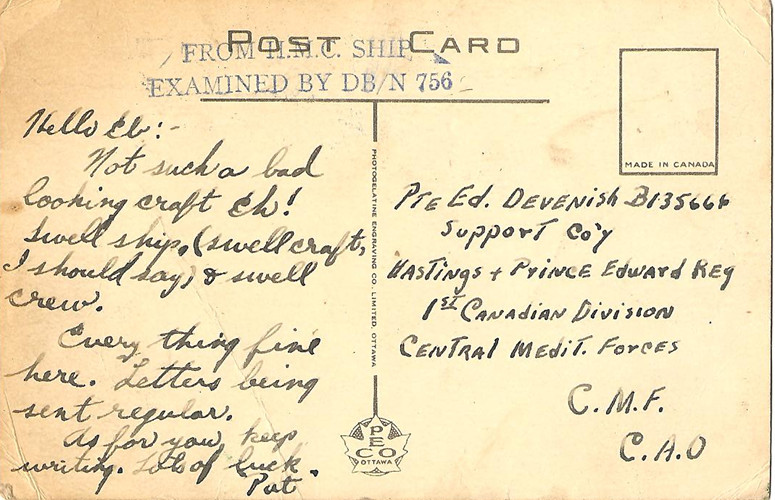 POST CARD
FROM H.M.C. SHIP
EXAMINED BY DB/N 756
MADE IN CANADA
Hello Eb:-
Not such a bad
looking craft Eh!
Swell ship, (swell craft,
I should say) & swell
crew.
Every thing fine
here. Letters being
sent regular.
As for you, keep
writing. Lots of luck.
Pat
PHOTOGELATINE ENGRAVING CO. LIMITED, OTTAWA
PECO
OTTAWA
Pte Ed. Devenish B135666
Support Co'y
Hastings + Prince Edward Reg
1st Canadian Division
Central Medit. Forces
C.M.F.
C.A.O